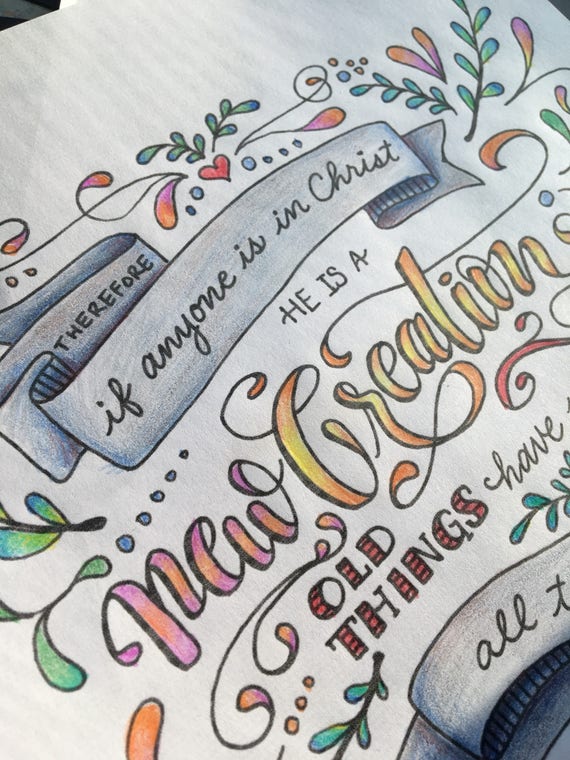 THEREFORE
if anyone is in Christ
HE IS A
new Creation
OLD THINGS have
all